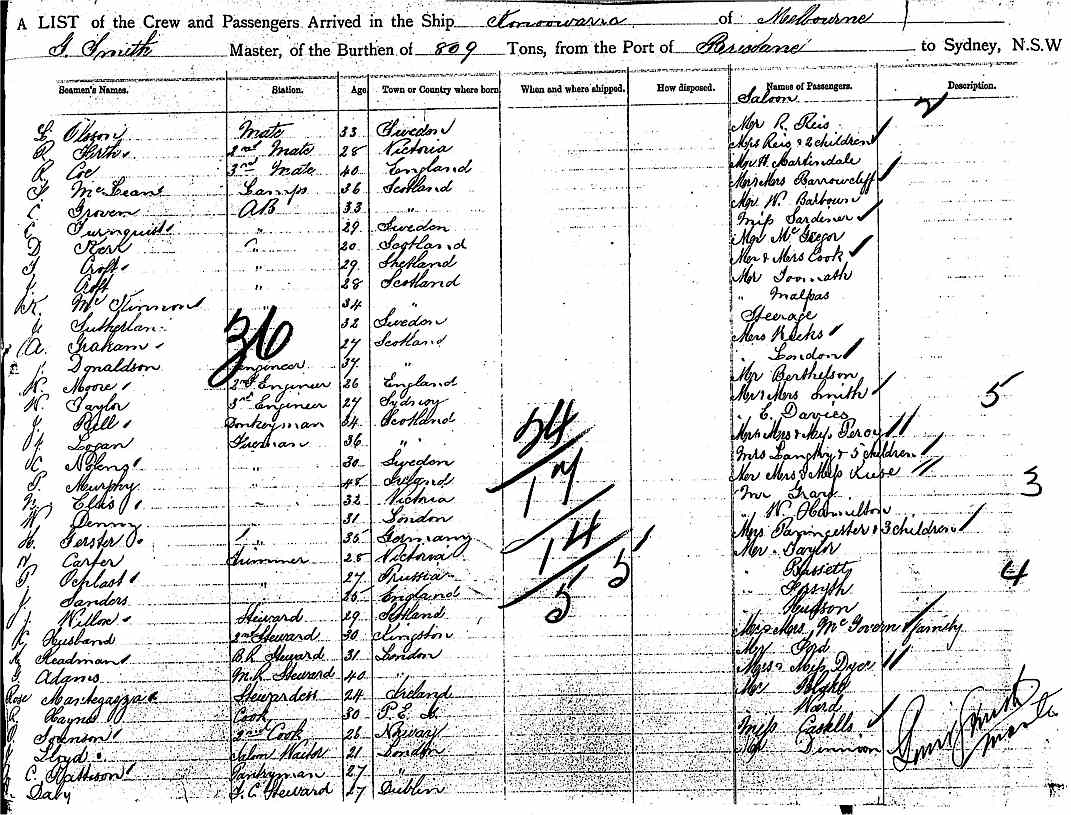 A LIST of the Crew and Passengers Arrived in the Ship Konoowarra of Melbourne
G. Smith Master, of the Burthen of 809 Tons, from the Port of Brisbane to Sydney, N.S.W
Seamen's Names. Station. Age Town or Country where born When and where shipped. How disposed. Names of Passengers. Description.
Saloon
L Olsson Mate 33 Sweden Mr R. Reis
R Firth 2nd Mate 28 Victoria Mrs Reis & 2 children
R Coe 3rd Mate 40 England Mr H. Martindale
McLean Lamps 36 Scotland Mr & Mrs Barrowcliff
C Groven AB 33 " Mr W. Barbour
C Turnquist " 29 Sweden Miss Gardener
D Kerr " 20 Scotland Mr McGregor
Croft " 29 Shetland Mr & Mrs Cook
J. Croft " 28 Scotland Mr Toomath
McKinnon " 34 " " Malpas
Sutherlan 32 Sweden Steerage
A. Graham 27 Scotland Mrs Ricks
J. Donaldson Engineer 37 " " London
W. Moore 2nd Engineer 26 England Mr Berthelson
W. Taylor 3rd Engineer 27 Sydney Mr & Mrs Smith
J. Bell Donkeyman 34 Scotland " E. Davies
Logan Fireman 36 " Mr & Mrs & Miss Percy
" 30 Sweden Mrs Langtry & 5 children
Murphy " 48 Ireland Mr Mrs & Miss
Ellis " 32 Victoria Mr Gray
W. Denny 31 London " W. Hamilton
H. Gerster " 35 Germany Mrs & 3 children
W Carter Trimmer 28 Victoria Mr Taylor
" 27 Prussia " Bassett
J. Sanders 25 England " Forsyth
J. Steward 29 Scotland " Hudson
Husband 2nd Steward 30 Kingston Mr & Mrs McGovern & family
Readman B.R. Steward 31 London Mr Ord
G Adams M.R. Steward 40 " Mrs & Miss Dyer
Rose Stewardess 24 Ireland Mr Blight
R. Haynes Cook 30 P.E.I. " Ward
Johnson 2nd Cook 26 Norway Miss Casells
Lloyd Saloon Waiter 21 London Mr
C. Pattison Pantryman 27 "
Daly F.C. Steward 27 Dublin
36
34
17
14
5
5
2
5
3
4